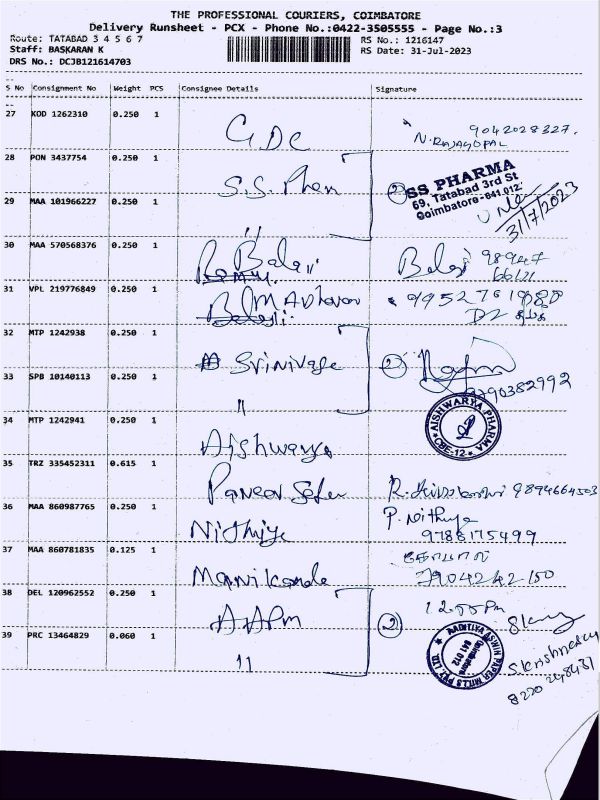 THE PROFESSIONAL COURIERS, COIMBATORE
Delivery Runsheet - PCX - Phone No.:0422-3505555 - Page No.:3
Route: TATABAD 3 4 5 6 7
RS No.: 1216147
Staff: BASKARAN K
RS Date: 31-Jul-2023
DRS No.: DCJB121614703
S No Consignment No Weight PCS Consignee Details Signature
27 KOD 1262310 0.250 1 GDC 9042028327.
N.RAJAGOPAL
28 PON 3437754 0.250 1 S.S. Phar
② SS PHARMA
69, Tatabad 3rd St
Coimbatore-641 012.
31/7/2023
29 MAA 101966227 0.250 1 "
30 MAA 570568376 0.250 1 Balaji Balaji 98947
66121
31 VPL 219776849 0.250 1 Madhavan 9952761980
32 MTP 1242938 0.250 1 Srinivase ②
9790382992
33 SPB 10140113 0.250 1 "
34 MTP 1242941 0.250 1 Aishwarya
AISHWARYA PHARMA
CBE-12
35 TRZ 335452311 0.615 1 9894664503
36 MAA 860987765 0.250 1 Nithiye P. Nithya
9788175499
37 MAA 860781835 0.125 1 Manikanda கோபால்
7904242150
38 DEL 120962552 0.250 1 AAPM ② 12.55 Pm
AADITIYA ASWIN PAPER MILLS PVT. LTD
Coimbatore
641 012
39 PRC 13464829 0.060 1 "
8220 248431